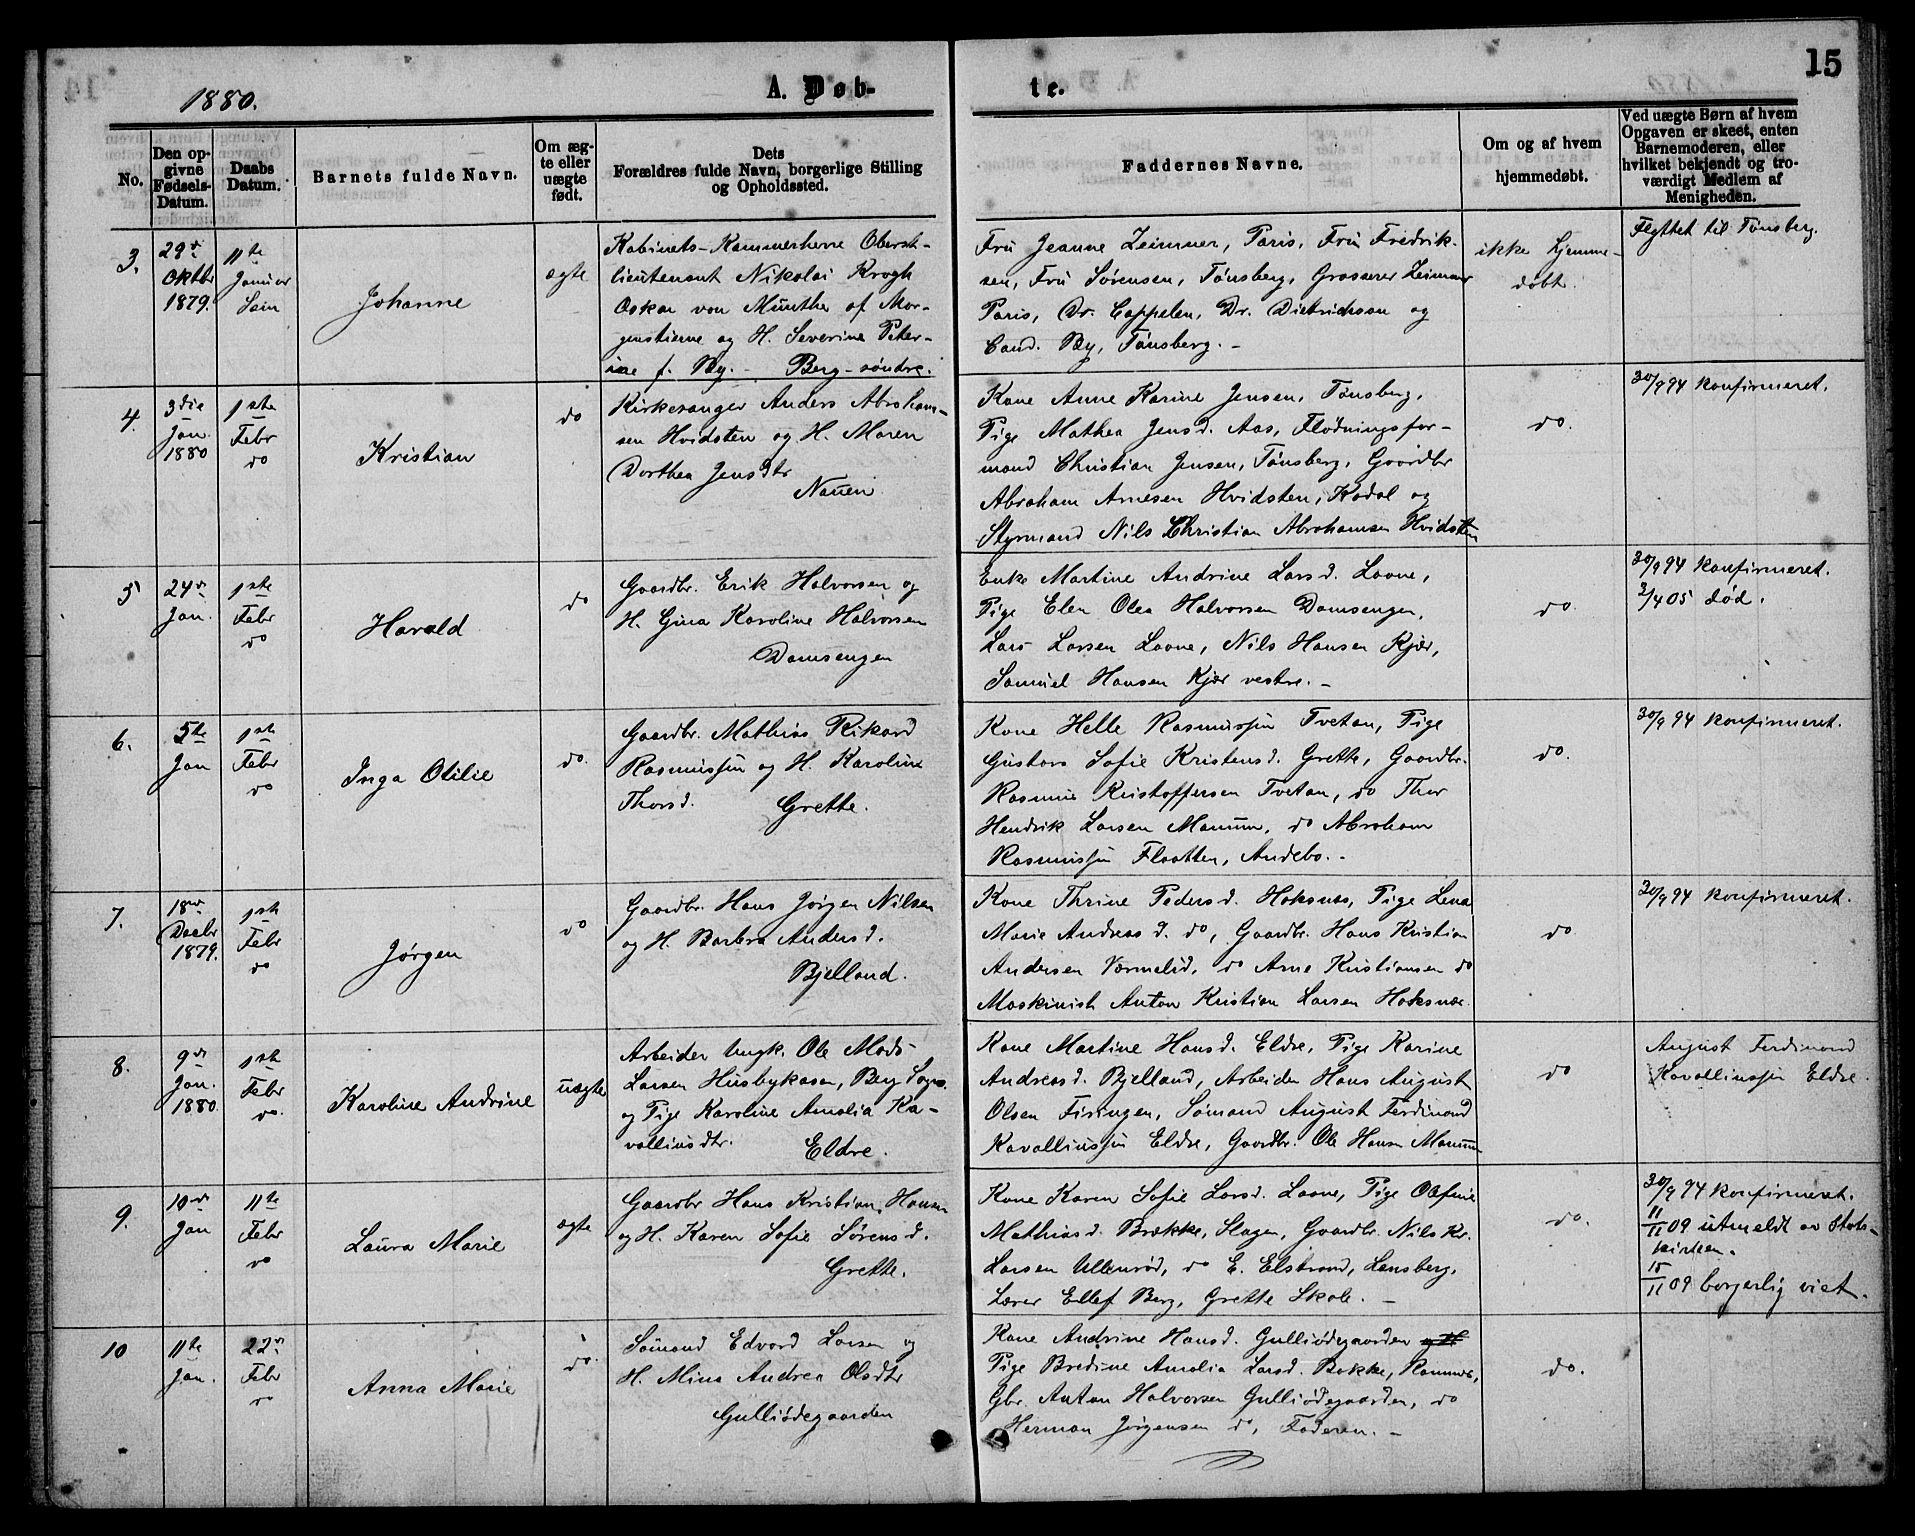 15
1880.
A. Døb-
te.
No.
Den op-
givne
Fødsels-
Datum.
Daabs
Datum.
Barnets fulde Navn.
Om æg-
te eller
uægte
født.
Dets
Forældres fulde Navn, borgerlige Stilling
og Opholdssted.
Faddernes Navne.
Om og af hvem
hjemmedøbt.
Ved uægte Børn af hvem
Opgaven er skeet, enten
Barnemoderen, eller
hvilket bekjendt og tro-
værdigt Medlem af
Menigheden.
3.
29de
Oktbr
1879.
11te
Januar
Sem
Johanne
ægte
Kabinets-Kammerherre Oberst-
lieutenant Nikolai Krogh
Oskar von Munthe af Mor-
genstierne og H. Severine Peter-
ine f. By. - Berg-søndre.
Fru Jeanne Zeimner, Paris, Fru Fredrik-
sen, Fru Sørensen, Tønsberg, Grosserer Zeimner
Paris, Dr. Cappelen, Dr. Dietrichson og
Cand. By, Tønsberg. -
ikke hjemme-
døbt.
Flyttet til Tønsberg.
4.
3die
Jan.
1880
1ste
Febr
do
Kristian
do
Kirkesanger Anders Abraham-
sen Hvidsten og H. Maren
Dorthea Jensdtr
Nauen
Kone Anne Karine Jensen, Tønsberg,
Pige Mathea Jensd. Aas, Flødningsfor-
mand Christian Jensen, Tønsberg, Gaardbr
Abraham Arnesen Hvidsten, Kodal og
Styrmand Nils Christian Abrahamsen Hvidsten
do.
30/9 94 konfirmeret.
5
24de
Jan.
1ste
Febr
do
Harald
do
Gaardbr. Erik Halvorsen og
H. Gina Karoline Halvorsen
Damsengen
Enke Martine Andrine Larsd. Laane,
Pige Elen Olea Halvorsen Damsengen,
Lars Larsen Laane, Nils Hansen Kjær,
Samuel Hansen Kjær vestre. -
do.
30/9 94 konfirmeret.
2/4 05 død.
6.
5te
Jan
1ste
Febr
do
Inga Otilie
do.
Gaardbr. Mathias Rikard
Rasmussen og H. Karoline
Thorsd. Grette.
Kone Helle Rasmussen Tvetan, Pige
Gustava Sofie Kristensd. Grette, Gaardbr.
Rasmus Kristoffersen Tvetan, do Thor
Hendrik Larsen Manum, do Abraham
Rasmussen Flaatten, Andebo. -
do.
30/9 94 konfirmeret.
7.
18de
Decbr
1879.
1ste
Febr
do
Jørgen
do
Gaardbr. Hans Jørgen Nilsen
og H. Barbra Andersd.
Bjelland.
Kone Thrine Pedersd. Haksnes, Pige Lena
Marie Andreasd. do, Gaardbr. Hans Kristian
Andersen Varmelid, do Arne Kristiansen do
Maskinist Anton Kristian Larsen Haksnæs.
do
30/9 94 konfirmeret.
8.
9de
Jan.
1880.
1ste
Febr
do.
Karoline Andrine
uægte
Arbeider Ungk. Ole Mads
Larsen Husbykasen, Berg Sogn.
og Pige Karoline Amalia Ka-
vallinsdtr. Eldre.
Kone Martine Hansd. Eldre, Pige Karine
Andreasd. Bjelland, Arbeider Hans August
Olsen Firingen, Sømand August Ferdinand
Kavallinssen Eldre, Gaardbr. Ole Hansen Manum
do
August Ferdinand
Kavallinssen Eldre.
9.
10de
Jan
11te
Febr
do
Laura Marie
ægte
Gaardbr Hans Kristian Hansen
og H. Karen Sofie Sørensd.
Grette.
Kone Karen Sofie Larsd. Laane, Pige Olefine
Mathiasd. Brække, Slagen, Gaardbr. Nils Kr.
Larsen Ullenrød, do E. Elstrand, Lensberg,
Lærer Ellef Berg, Grette Skole. -
do.
30/9 94 konfirmeret.
11/11 09 utmeldt av Stats-
kirken.
15/11 09 borgerlig viet.
10
11te
Jan.
22de
Febr
do
Anna Marie
do.
Sømand Edvard Larsen og
H. Mina Andrea Olsdtr
Gulliødegaarden
Kone Andrine Hansd. Gulliødegaarden
Pige Bredine Amalia Larsd. Bakke, Ramnæs,
Gbr. Anton Halvorsen Gulliødegaarden, do
Herman Jørgensen do, Faderen. -
do.